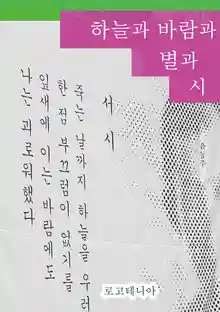 하늘과 바람과
별과
시
윤동주
서시
죽는 날까지 하늘을 우러
한점 부끄럼이 없기를
잎새에 이는 바람에도
나는 괴로워했다
로고테니아